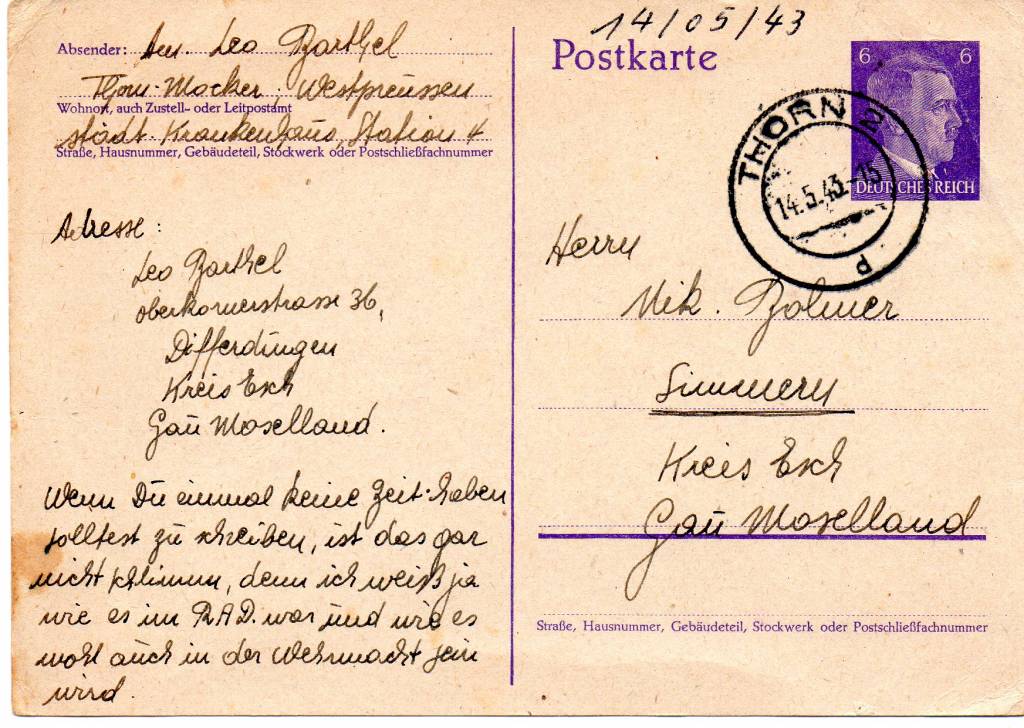 14/05/43
Absender: Leo Barthel
Thorn-Mocker. Westpreussen
Wohnort, auch Zustell- oder Leitpostamt
städt. Krankenhaus, Station 4
Straße, Hausnummer, Gebäudeteil, Stockwerk oder Postschließfachnummer
Adresse:
Leo Barthel
oberkornerstrasse 36,
Differdingen
Kreis Esch
Gau Moselland.
Wenn Du einmal keine Zeit haben
solltest zu schreiben, ist das gar
nicht schlimm, denn ich weiß ja
wie es im RAD. war und wie es
wohl auch in der Wehrmacht sein
wird.
Postkarte
6 6
DEUTSCHES REICH
THORN 2
14.5.43.-15
d
Herrn
Nik. Bolmer
Simmern
Kreis Esch
Gau Moselland
Straße, Hausnummer, Gebäudeteil, Stockwerk oder Postschließfachnummer